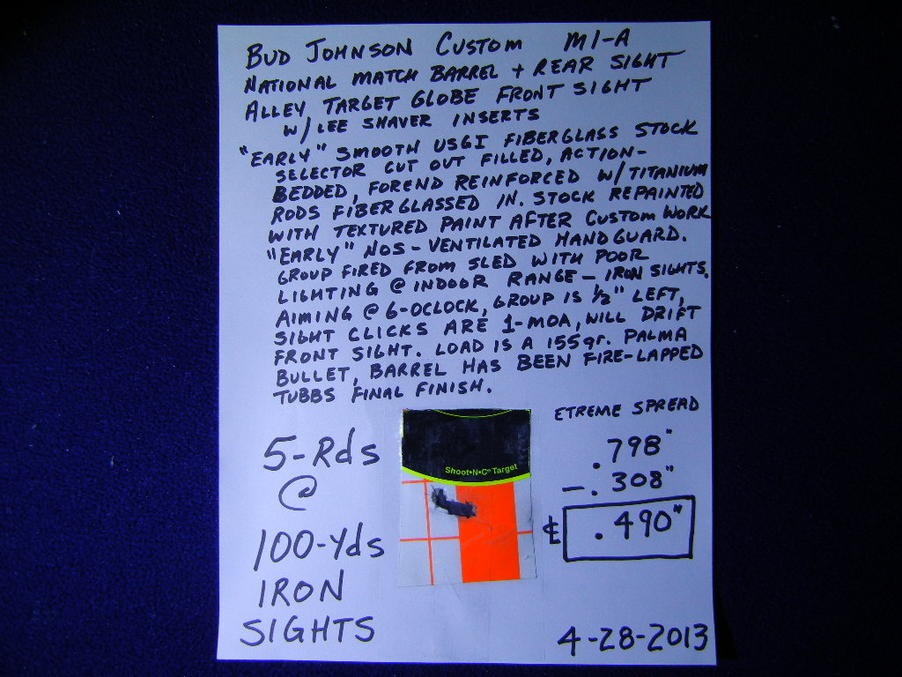 BUD JOHNSON CUSTOM M1-A
NATIONAL MATCH BARREL + REAR SIGHT
ALLEY TARGET GLOBE FRONT SIGHT
W/LEE SHAVER INSERTS
"EARLY" SMOOTH USGI FIBERGLASS STOCK
SELECTOR CUT OUT FILLED, ACTION-
BEDDED, FOREND REINFORCED W/TITANIUM
RODS FIBERGLASSED IN. STOCK REPAINTED
WITH TEXTURED PAINT AFTER CUSTOM WORK
"EARLY" NOS-VENTILATED HANDGUARD.
GROUP FIRED FROM SLED WITH POOR
LIGHTING @ INDOOR RANGE - IRON SIGHTS.
AIMING @ 6-OCLOCK, GROUP IS 1/2" LEFT,
SIGHT CLICKS ARE 1-MOA, WILL DRIFT
FRONT SIGHT. LOAD IS A 155gr. PALMA
BULLET, BARREL HAS BEEN FIRE-LAPPED
TUBBS FINAL FINISH.
5-Rds
@
100-Yds
IRON
SIGHTS
Shoot•N•C® Target
ETREME SPREAD
.798"
-.308"
℄ .490"
4-28-2013